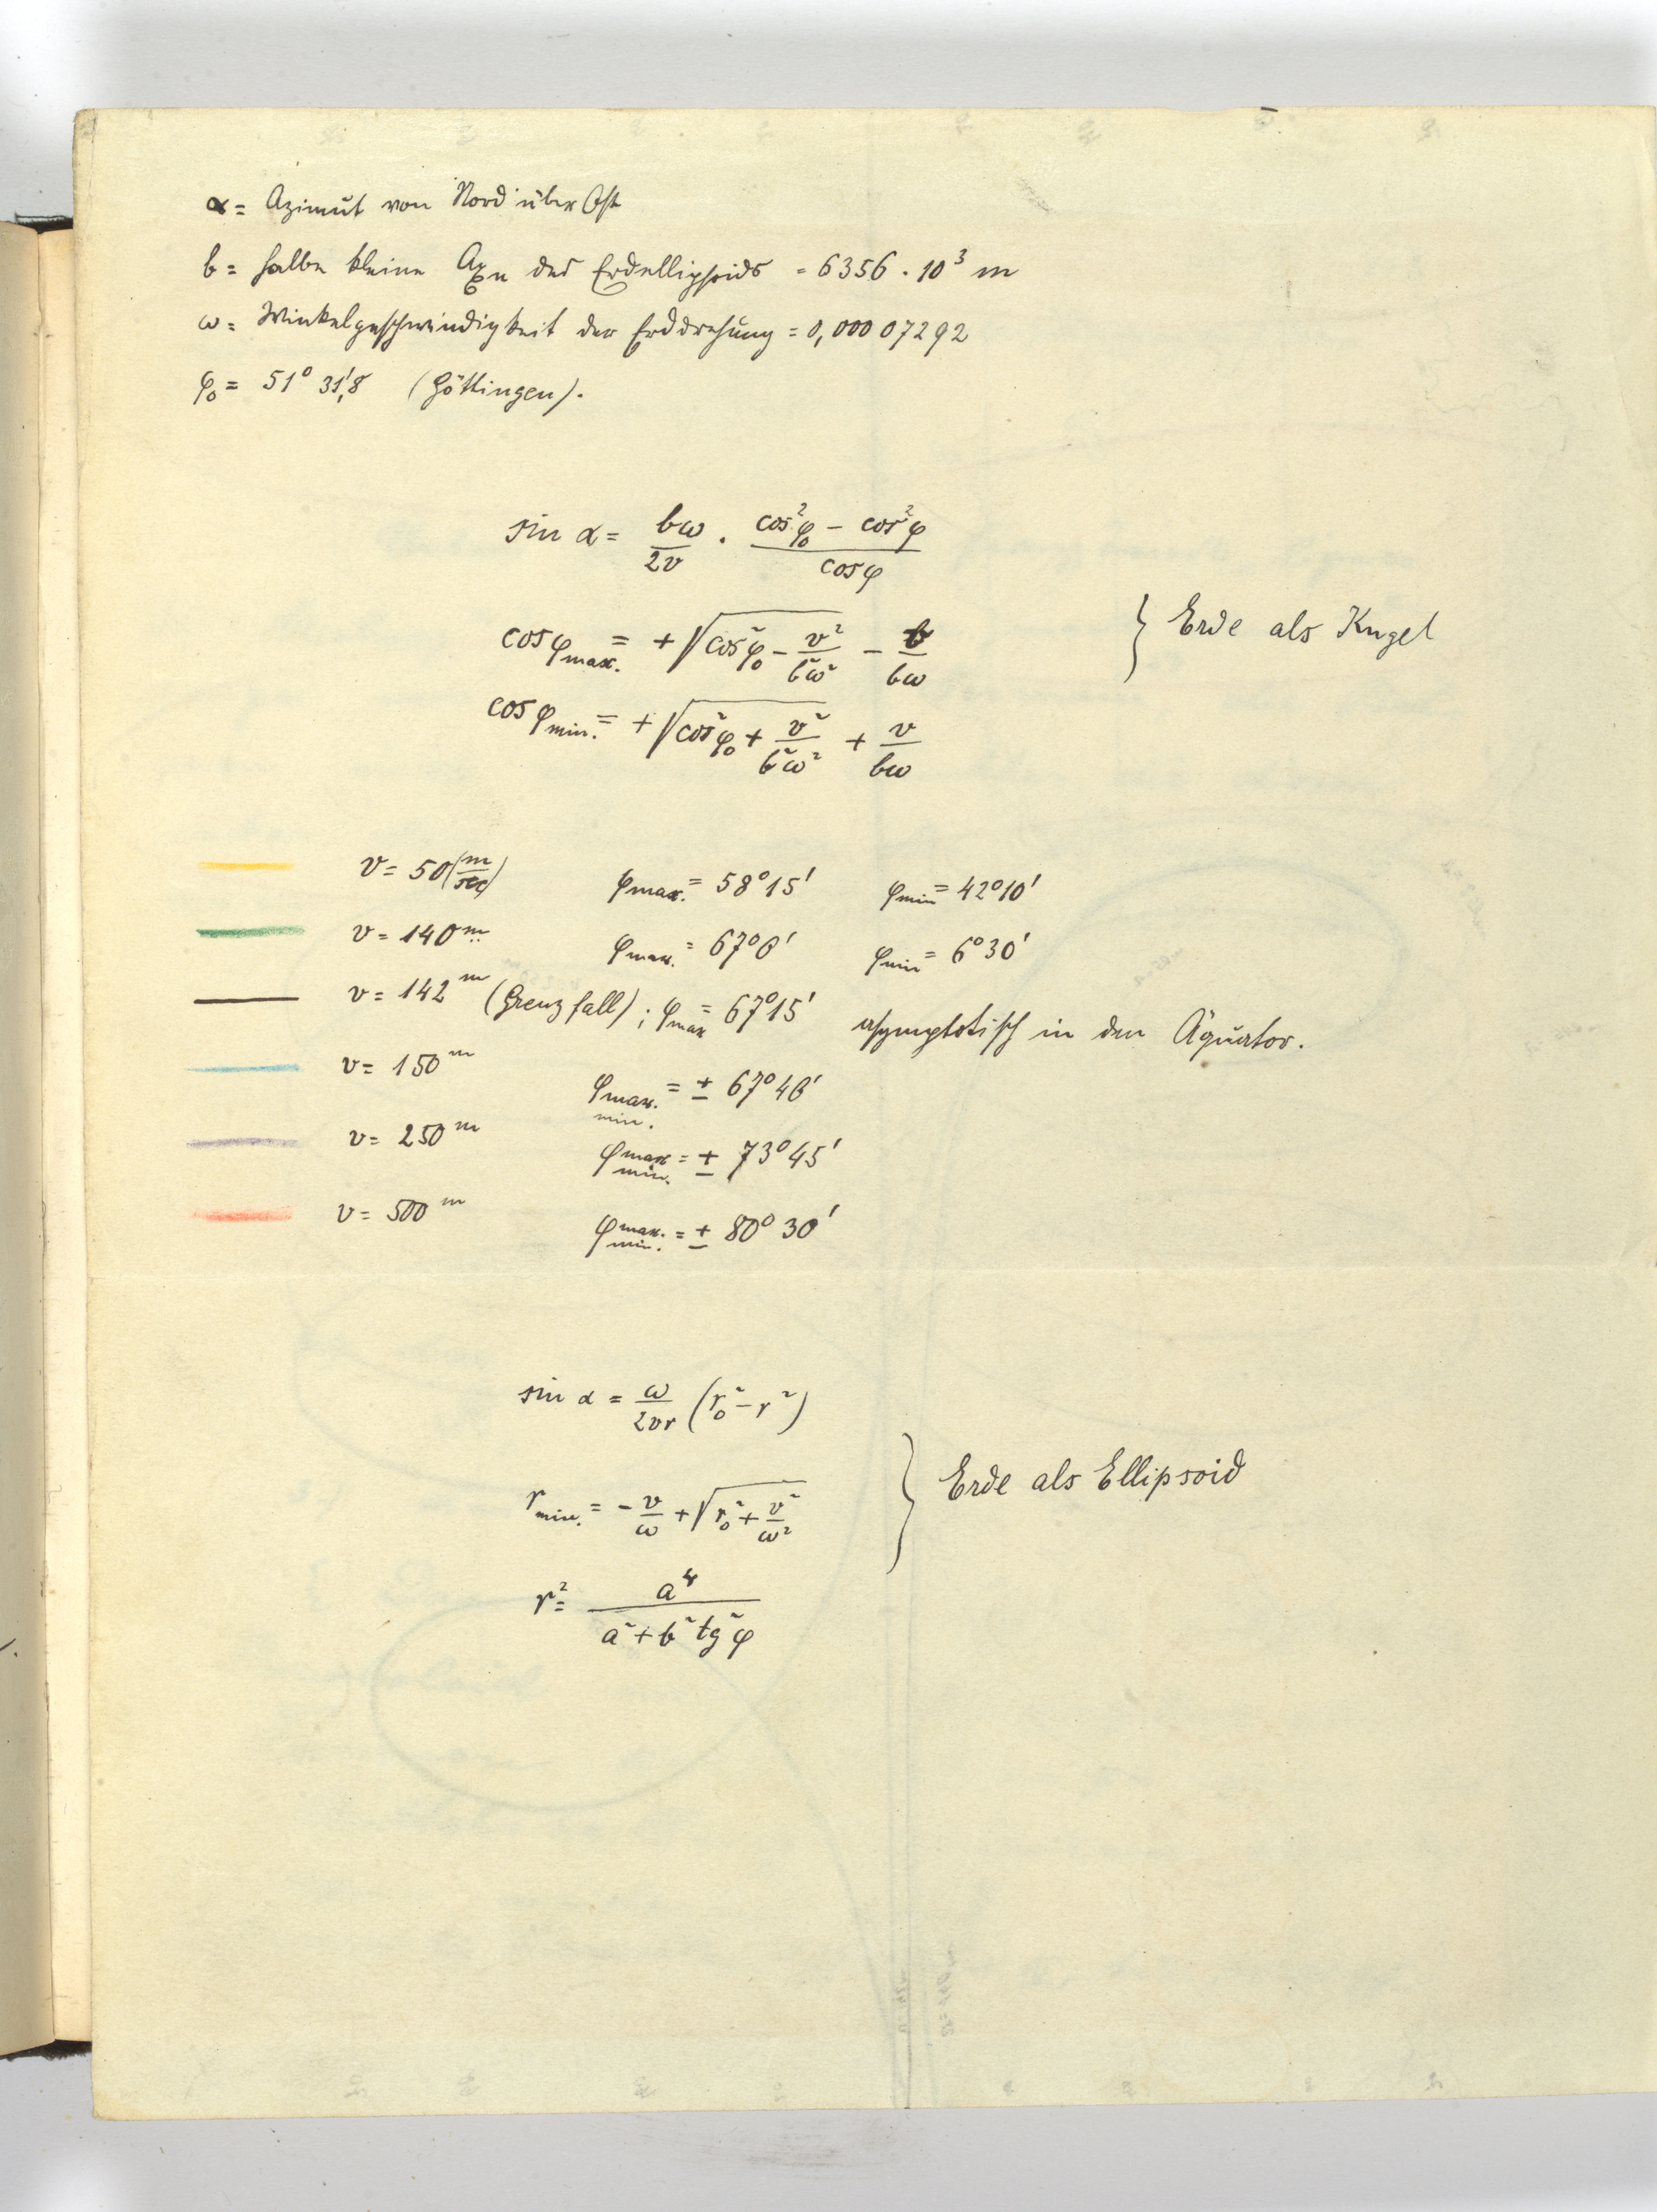 α = Azimut von Nord über Ost
b = halbe kleine Axe des Erdellipsoids = 6356 . 10³ m
ω = Winkelgeschwindigkeit der Erddrehung = 0,000 07292
φ₀ = 51° 31',8 (Göttingen).
sin α = bω/2v . (cos²φ₀ − cos²φ)/cosφ
cosφmax. = +√(cos²φ₀ − v²/b²ω²) − v/bω
} Erde als Kugel
cosφmin. = +√(cos²φ₀ + v²/b²ω²) + v/bω
v = 50 (m/sec) φmax. = 58°15' φmin = 42°10'
v = 140 m φmax. = 67°0' φmin = 6°30'
v = 142 m (Grenzfall); φmax = 67°15' asymptotisch in den Äquator.
v = 150 m φmax. min. = ± 67°40'
v = 250 m φmax min. = ± 73°45'
v = 500 m φmax. min. = ± 80°30'
sin α = ω/2vr (r₀² − r²)
rmin. = − v/ω + √(r₀² + v²/ω²)
} Erde als Ellipsoid
r² = a⁴/(a² + b² tg²φ)